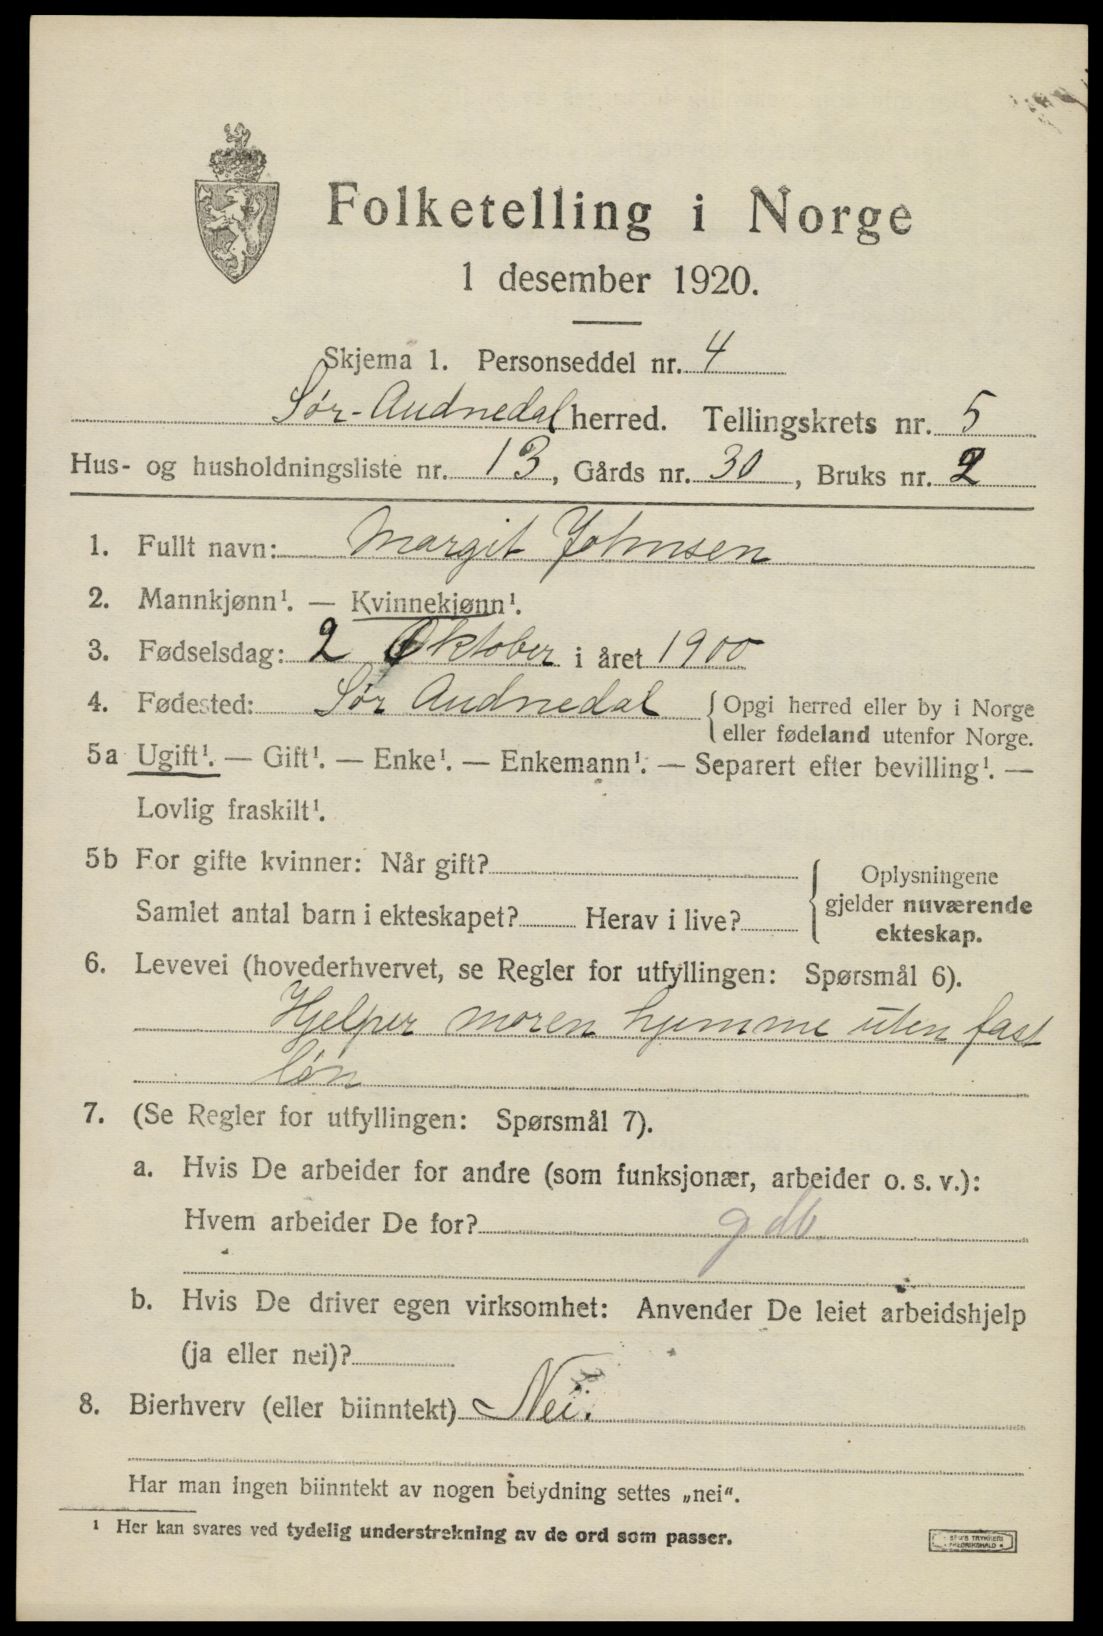 Folketelling i Norge
1 desember 1920.
Skjema 1. Personseddel nr. 4
Sør-Audnedal herred. Tellingskrets nr. 5
Hus- og husholdningsliste nr. 13, Gårds nr. 30, Bruks nr. 2
1. Fullt navn: Margit Johnsen
2. Mannkjønn¹. — Kvinnekjønn¹.
3. Fødselsdag: 2 Oktober i året 1900
4. Fødested: Sør Audnedal { Opgi herred eller by i Norge
eller fødeland utenfor Norge.
5a Ugift¹. — Gift¹. — Enke¹. — Enkemann¹. — Separert efter bevilling¹. —
Lovlig fraskilt¹.
5b For gifte kvinner: Når gift?
Samlet antal barn i ekteskapet? Herav i live?
{ Oplysningene
gjelder nuværende
ekteskap.
6. Levevei (hovederhvervet, se Regler for utfyllingen: Spørsmål 6).
Hjelper moren hjemme uten fast
løn
7. (Se Regler for utfyllingen: Spørsmål 7).
a. Hvis De arbeider for andre (som funksjonær, arbeider o. s. v.):
Hvem arbeider De for? gdb.
b. Hvis De driver egen virksomhet: Anvender De leiet arbeidshjelp
(ja eller nei)?
8. Bierhverv (eller biinntekt) Nei.
Har man ingen biinntekt av nogen betydning settes „nei“.
¹ Her kan svares ved tydelig understrekning av de ord som passer.
TRYKKERI
FREDRIKSHALD